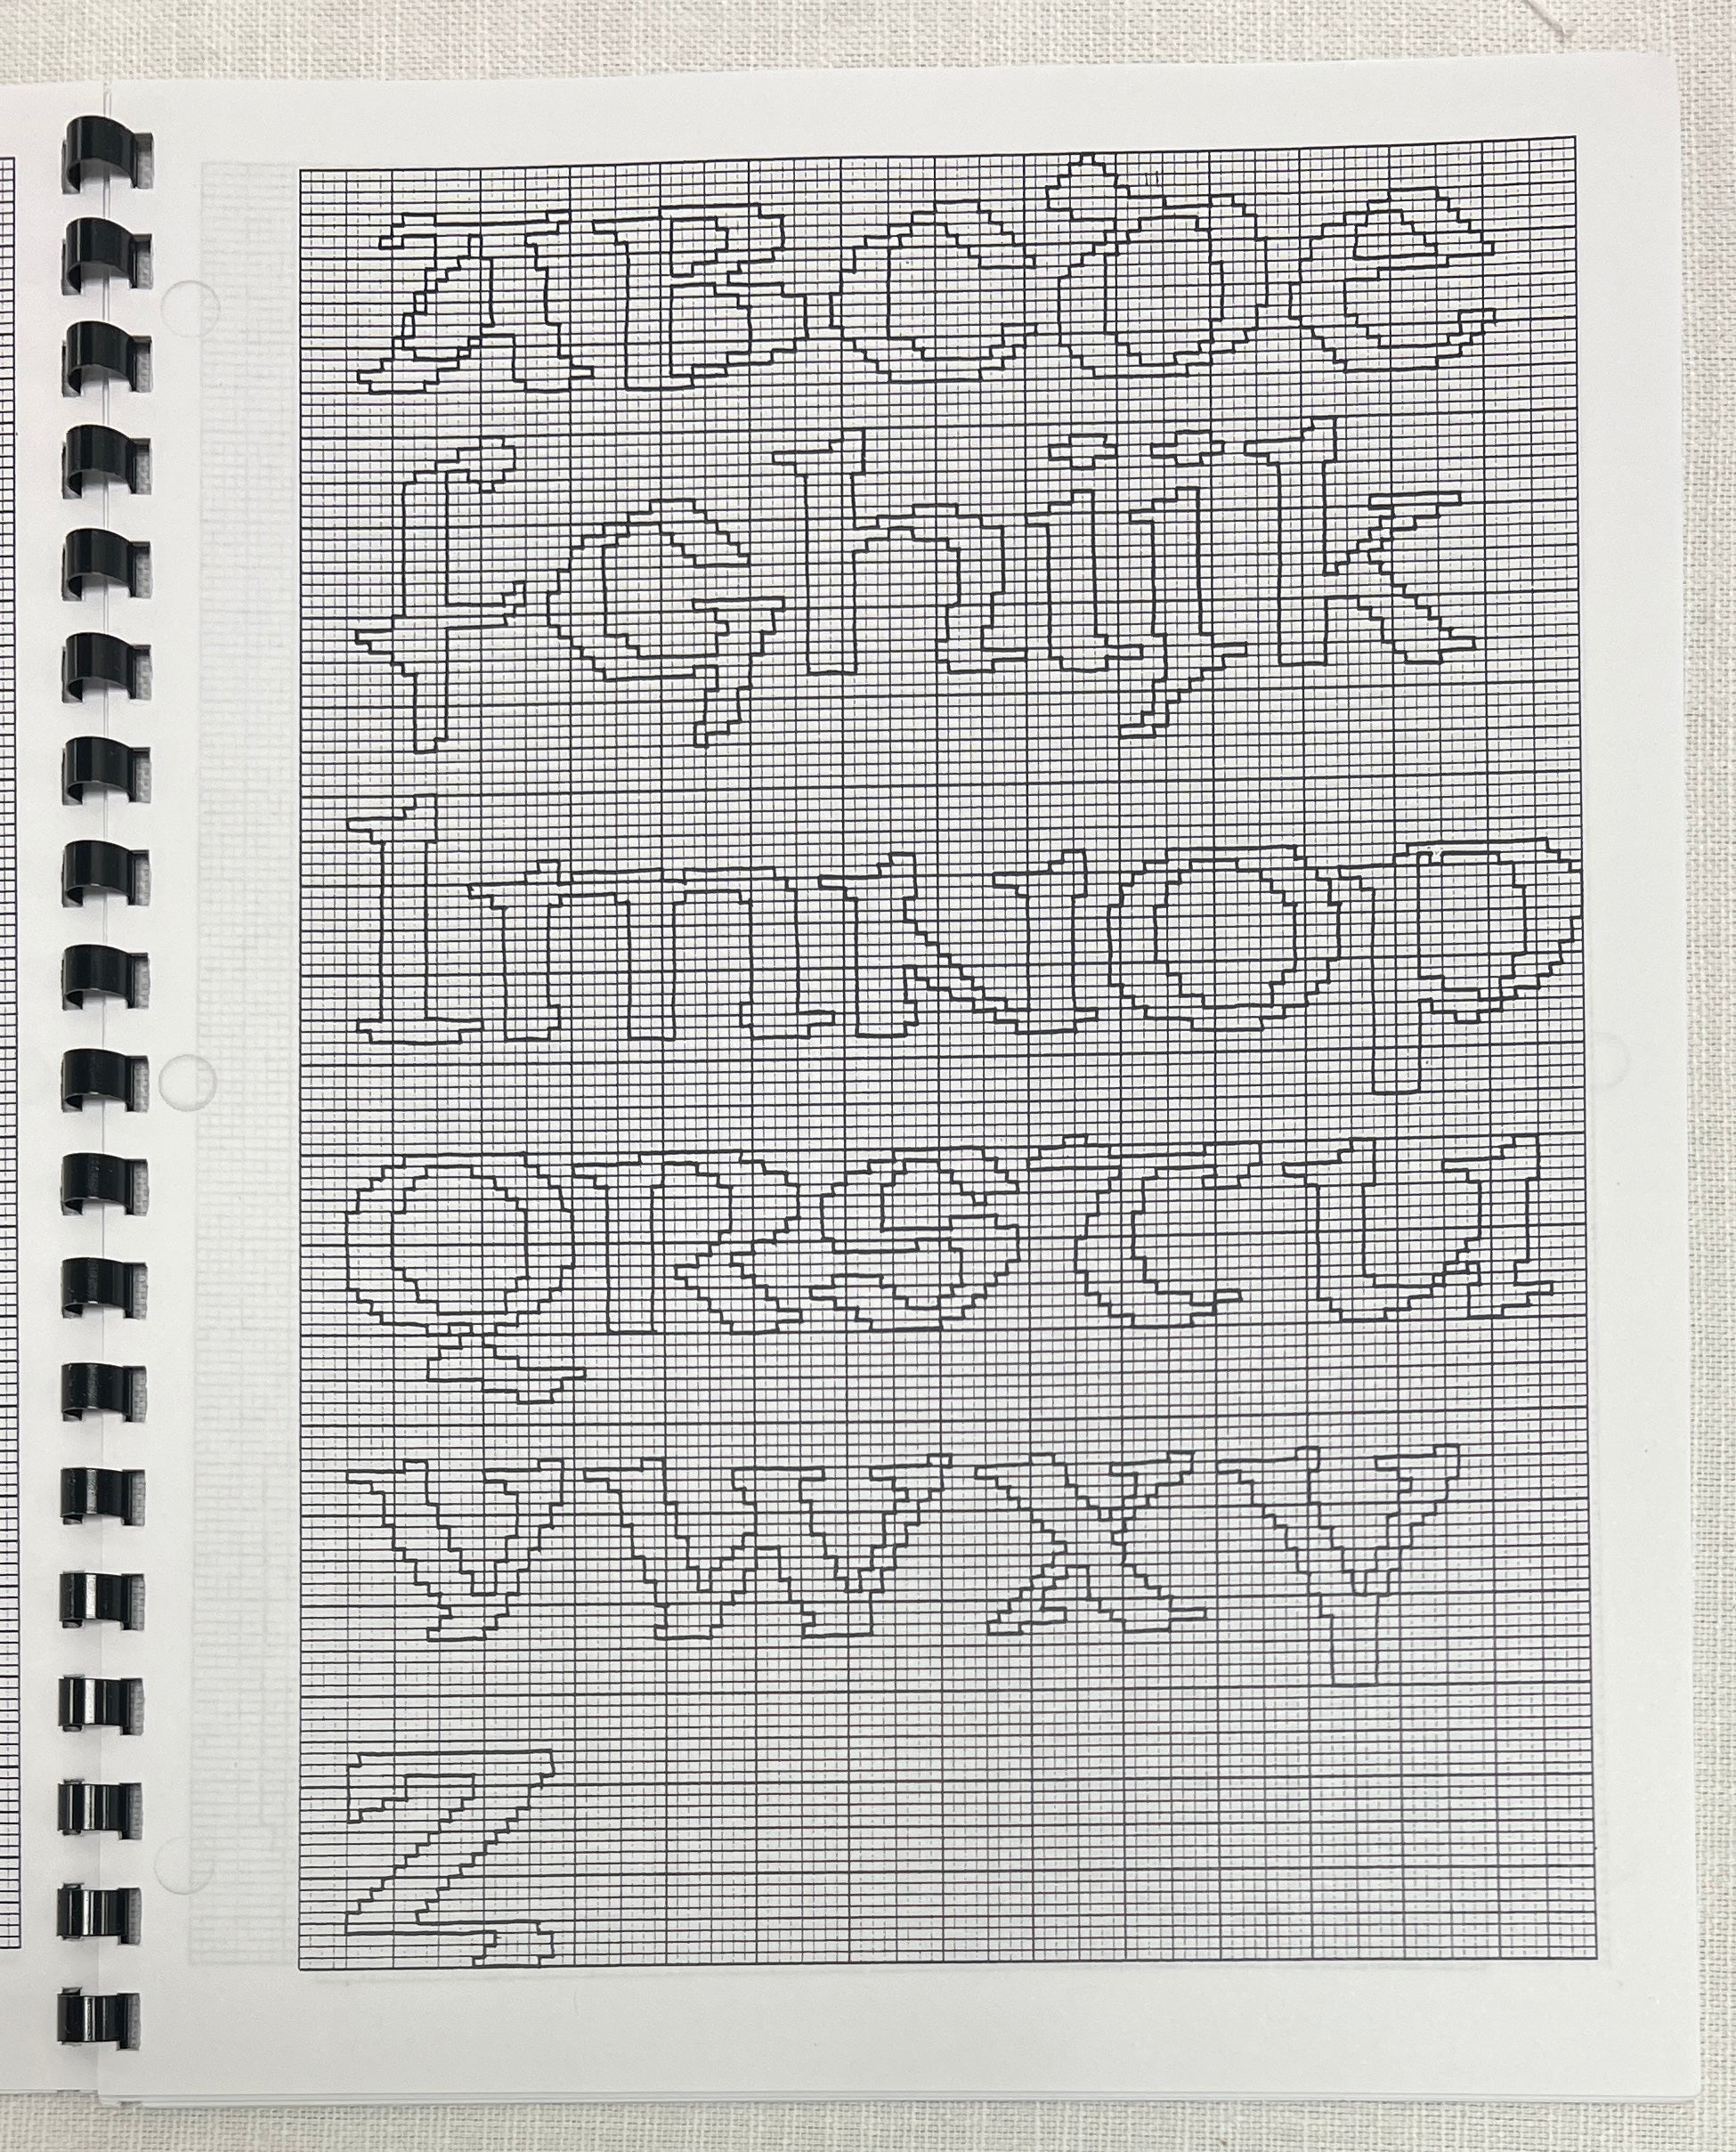 A B C D e
f G h i j k
l m N O p
Q R S t u
v w x y
z